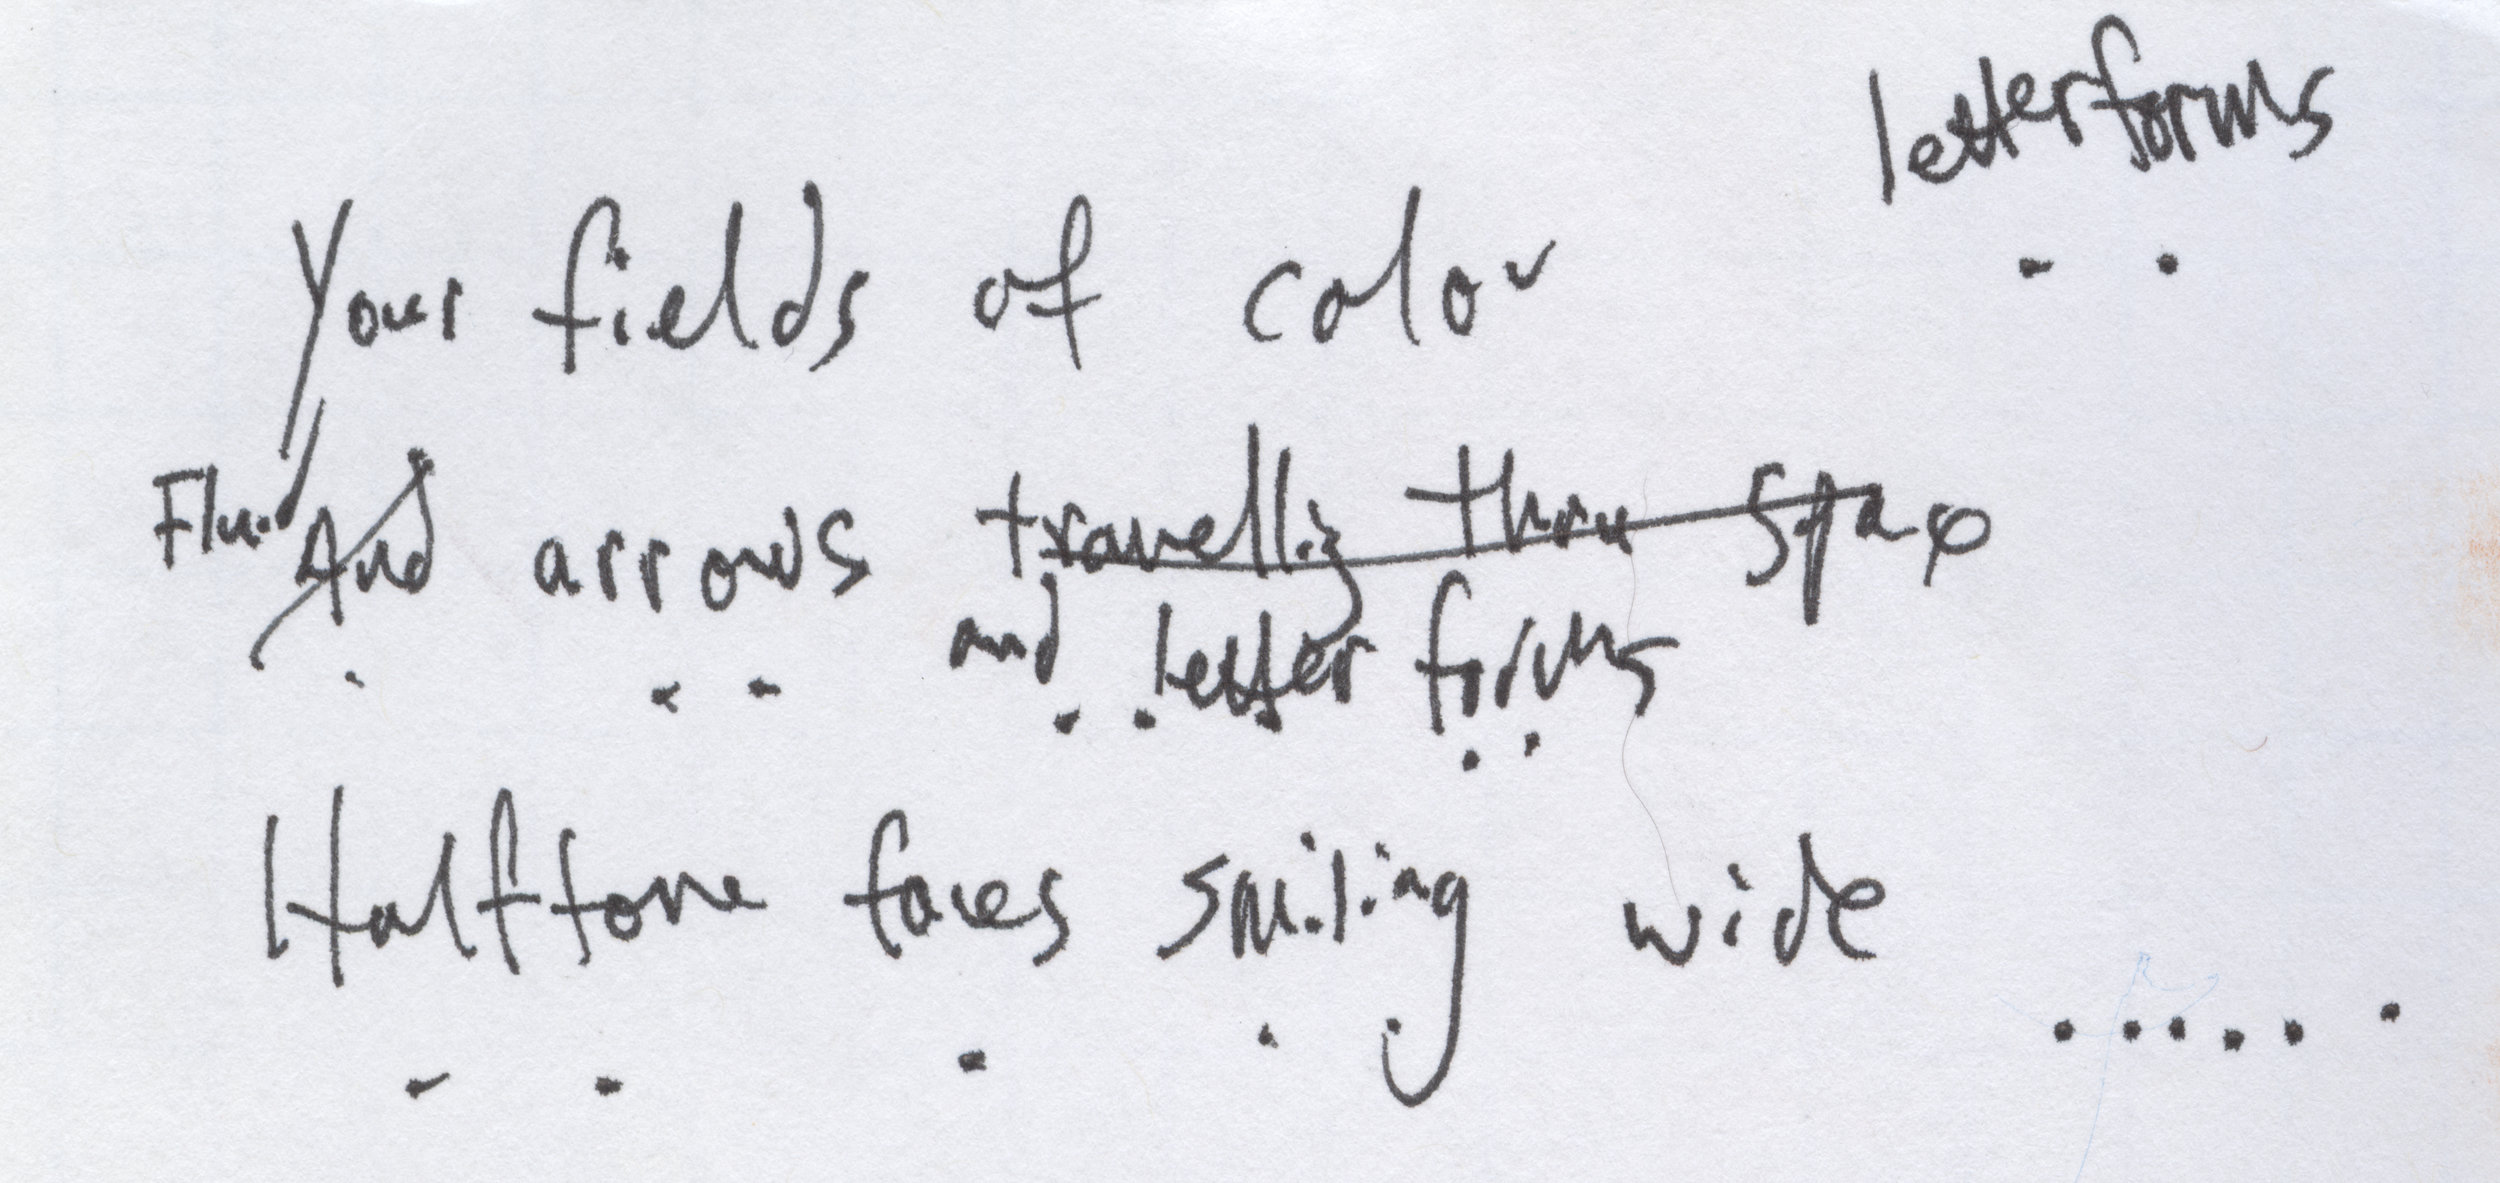 letterforms
Your fields of color
Fluid And arrows travelling thru space
and letter forms
Halftone faces smiling wide